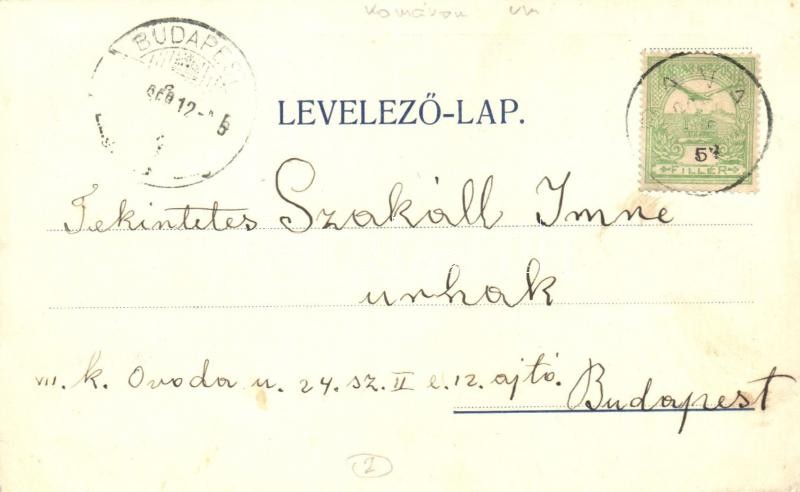 BUDAPEST
LEVELEZŐ-LAP.
5
FILLÉR
Tekintetes Szakáll Imre
urnak
VII. k. Ovoda u. 24. sz. II e. 12. ajtó.
Budapest
2